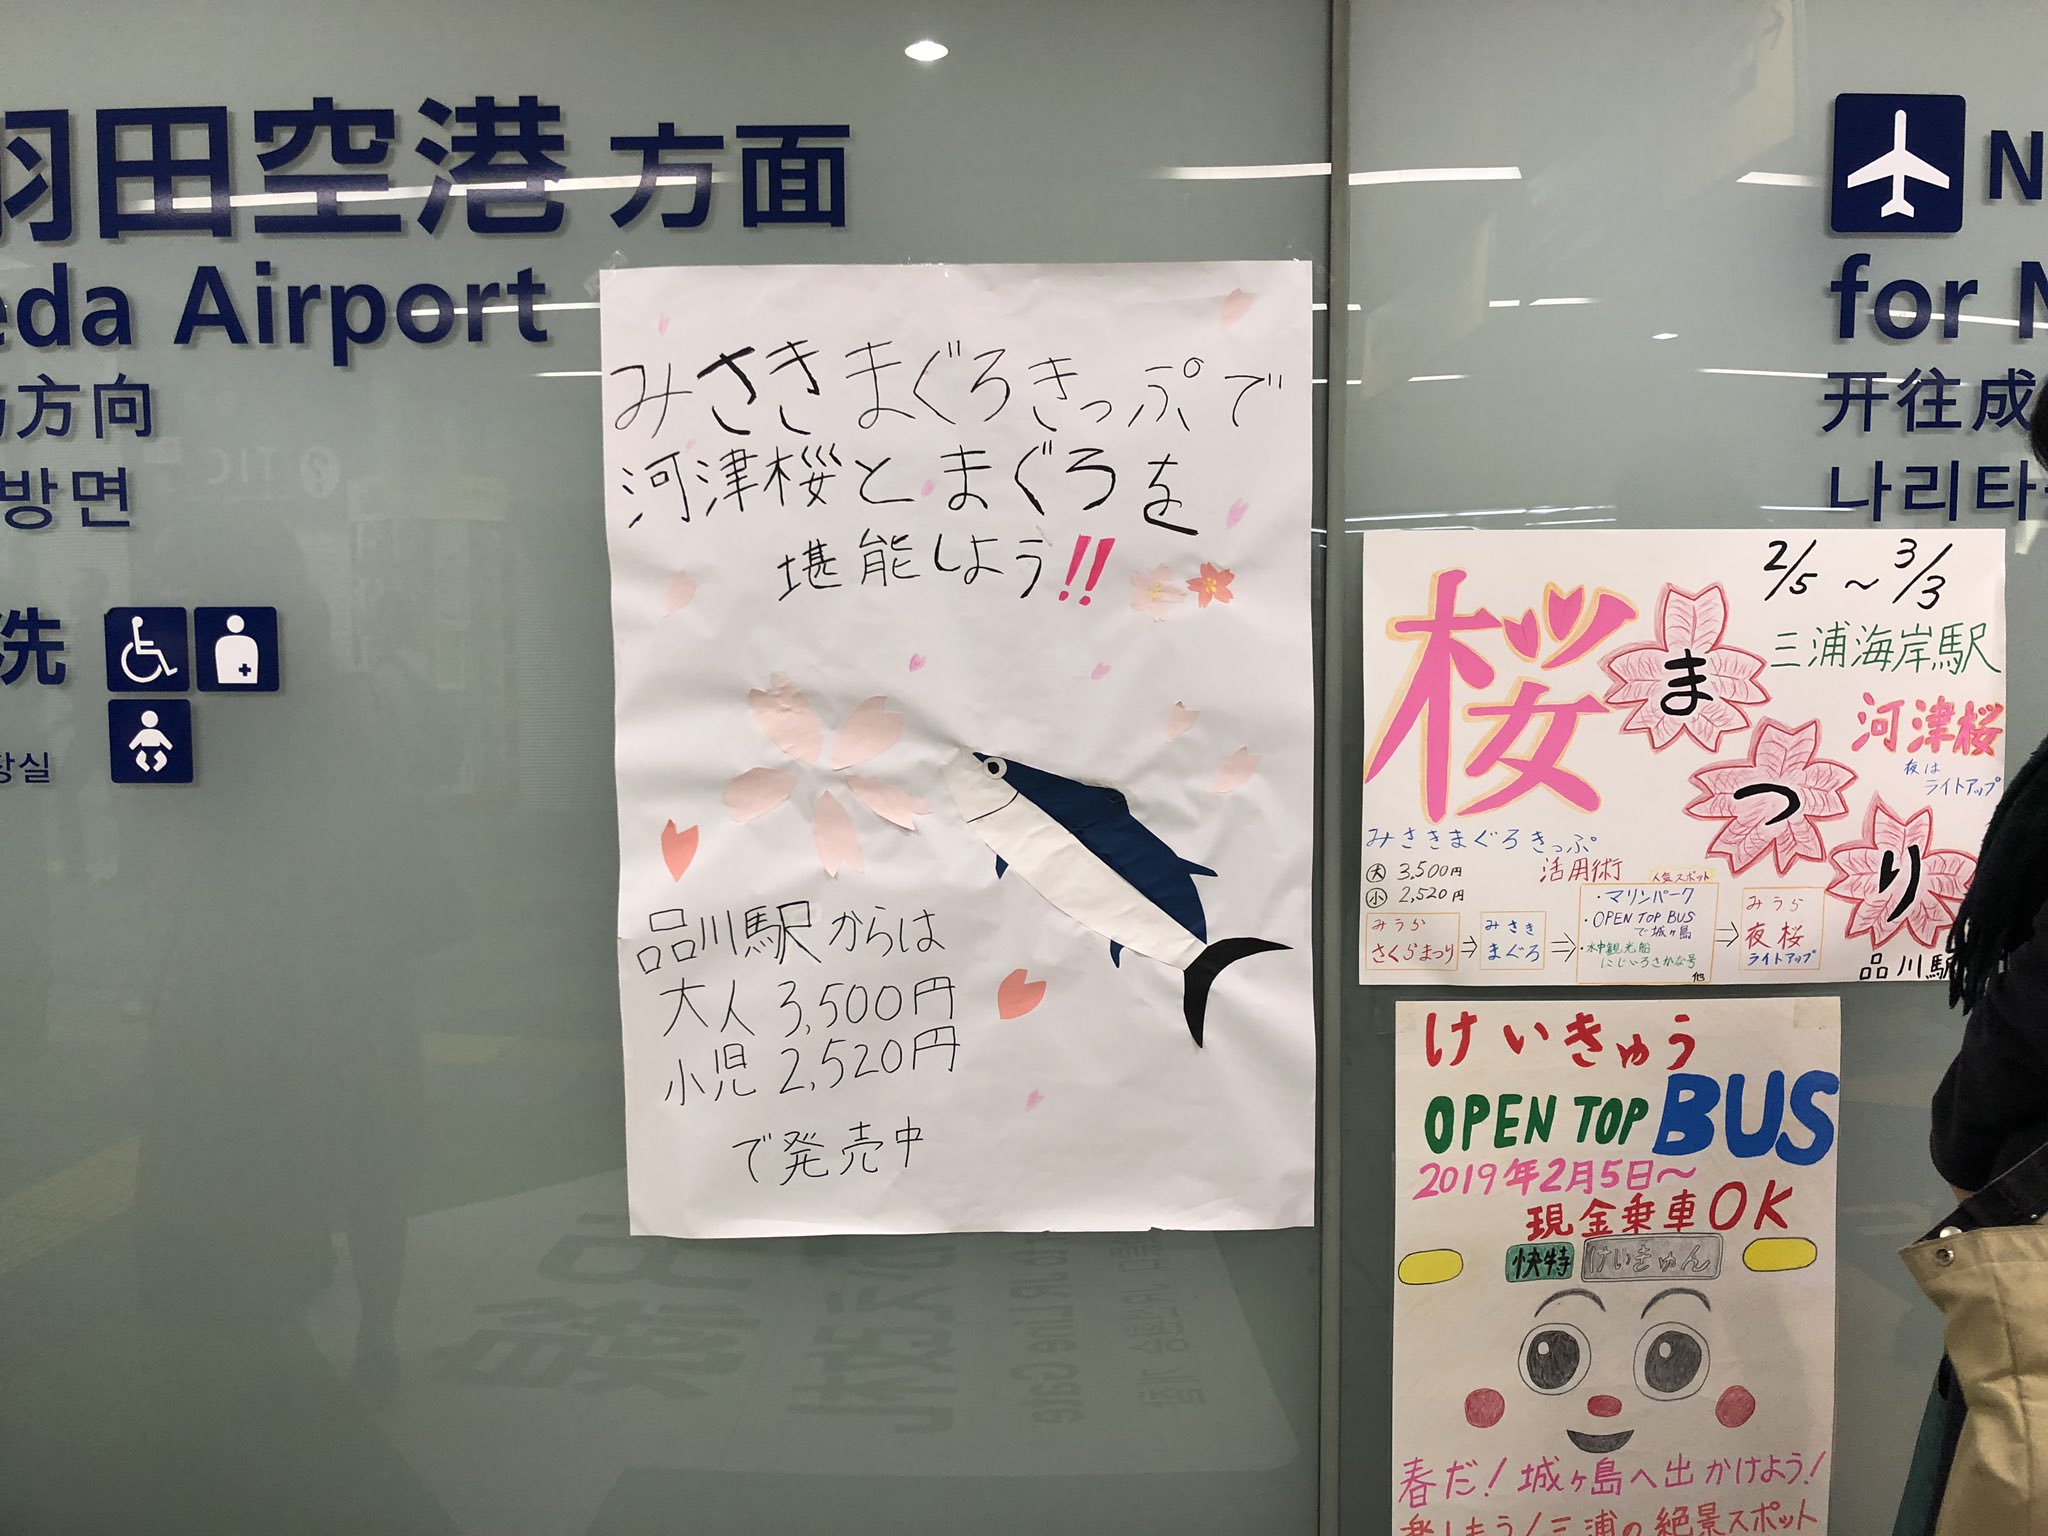 羽田空港 方面
eda Airport
方向
방면
洗
장실
TIC
みさきまぐろきっぷで
河津桜とまぐろを
堪能しよう!!
品川駅からは
大人 3,500円
小児 2,520円
で発売中
N
for N
开往成
나리타
2/5 ~ 3/3
三浦海岸駅
桜まつり
河津桜
夜は
ライトアップ
みさきまぐろきっぷ
活用術
大 3,500円
小 2,520円
みうら
さくらまつり
⇒
みさき
まぐろ
⇒
人気スポット
・マリンパーク
・OPEN TOP BUS
で城ヶ島
・水中観光船
にじいろさかな号
他
⇒
みうら
夜桜
ライトアップ
品川駅
けいきゅう
OPEN TOP BUS
2019年2月5日～
現金乗車OK
快特 けいきゅん
春だ!城ヶ島へ出かけよう!
楽しもう!三浦の絶景スポット